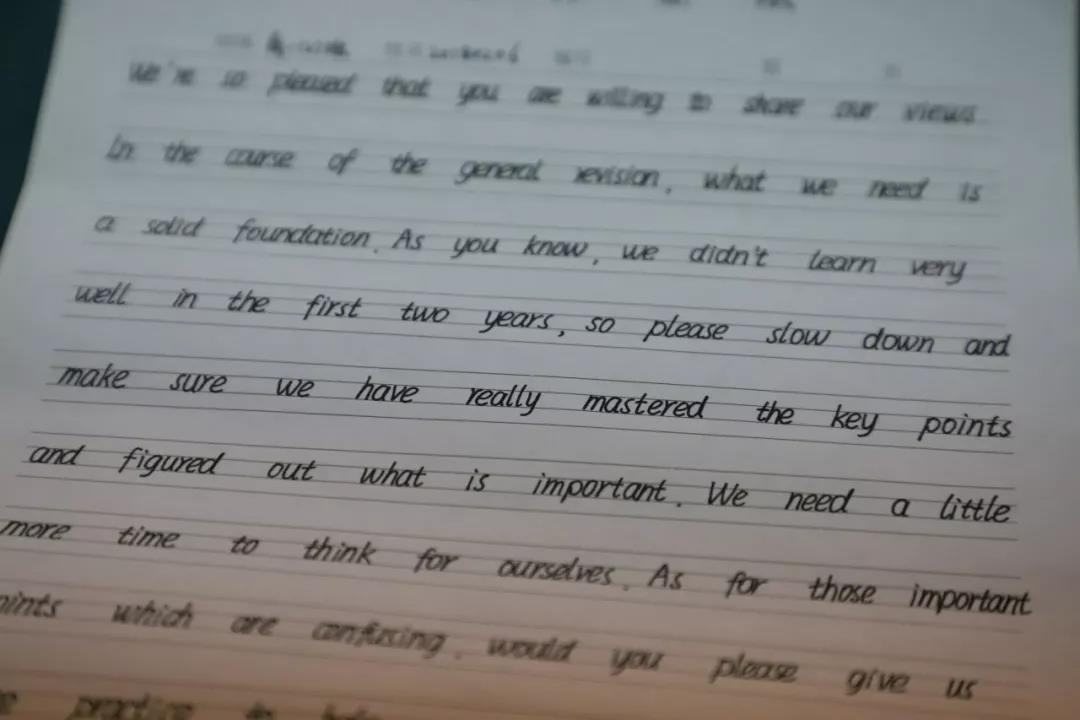 We're so pleased that you are willing to share our views.
In the course of the general revision, what we need is
a solid foundation. As you know, we didn't learn very
well in the first two years, so please slow down and
make sure we have really mastered the key points
and figured out what is important. We need a little
more time to think for ourselves. As for those important
which are confusing, would you please give us
practice to